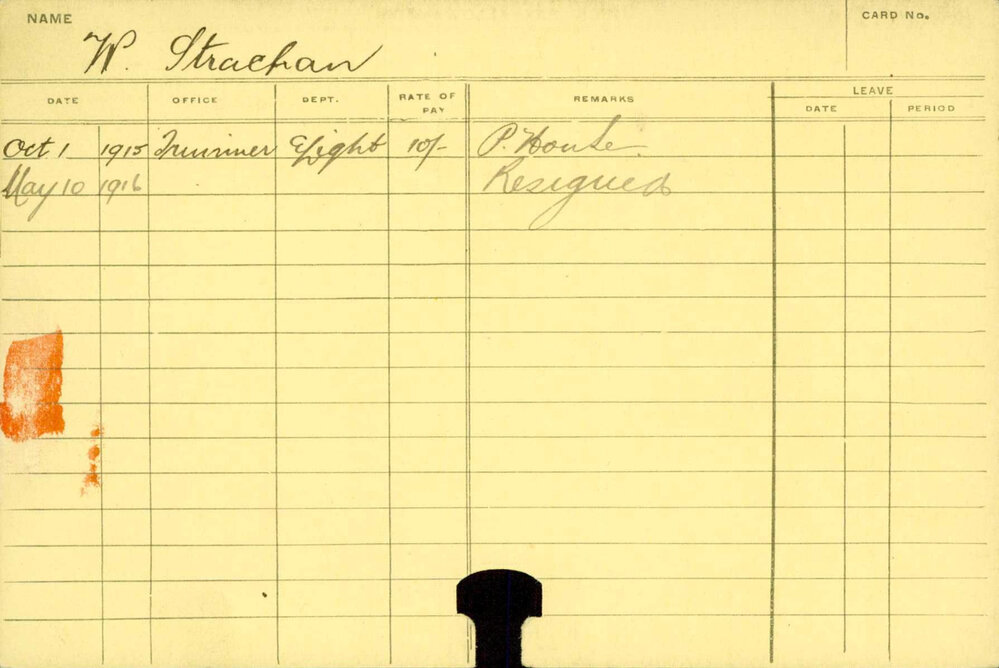 NAME
W. Strachan
CARD No.
DATE OFFICE DEPT. RATE OF PAY REMARKS LEAVE
DATE PERIOD
Oct 1 1915 Trimmer E Light 10/- P. House.
May 10 1916 Resigned